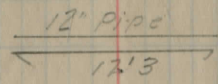 12" Pipe
12'3